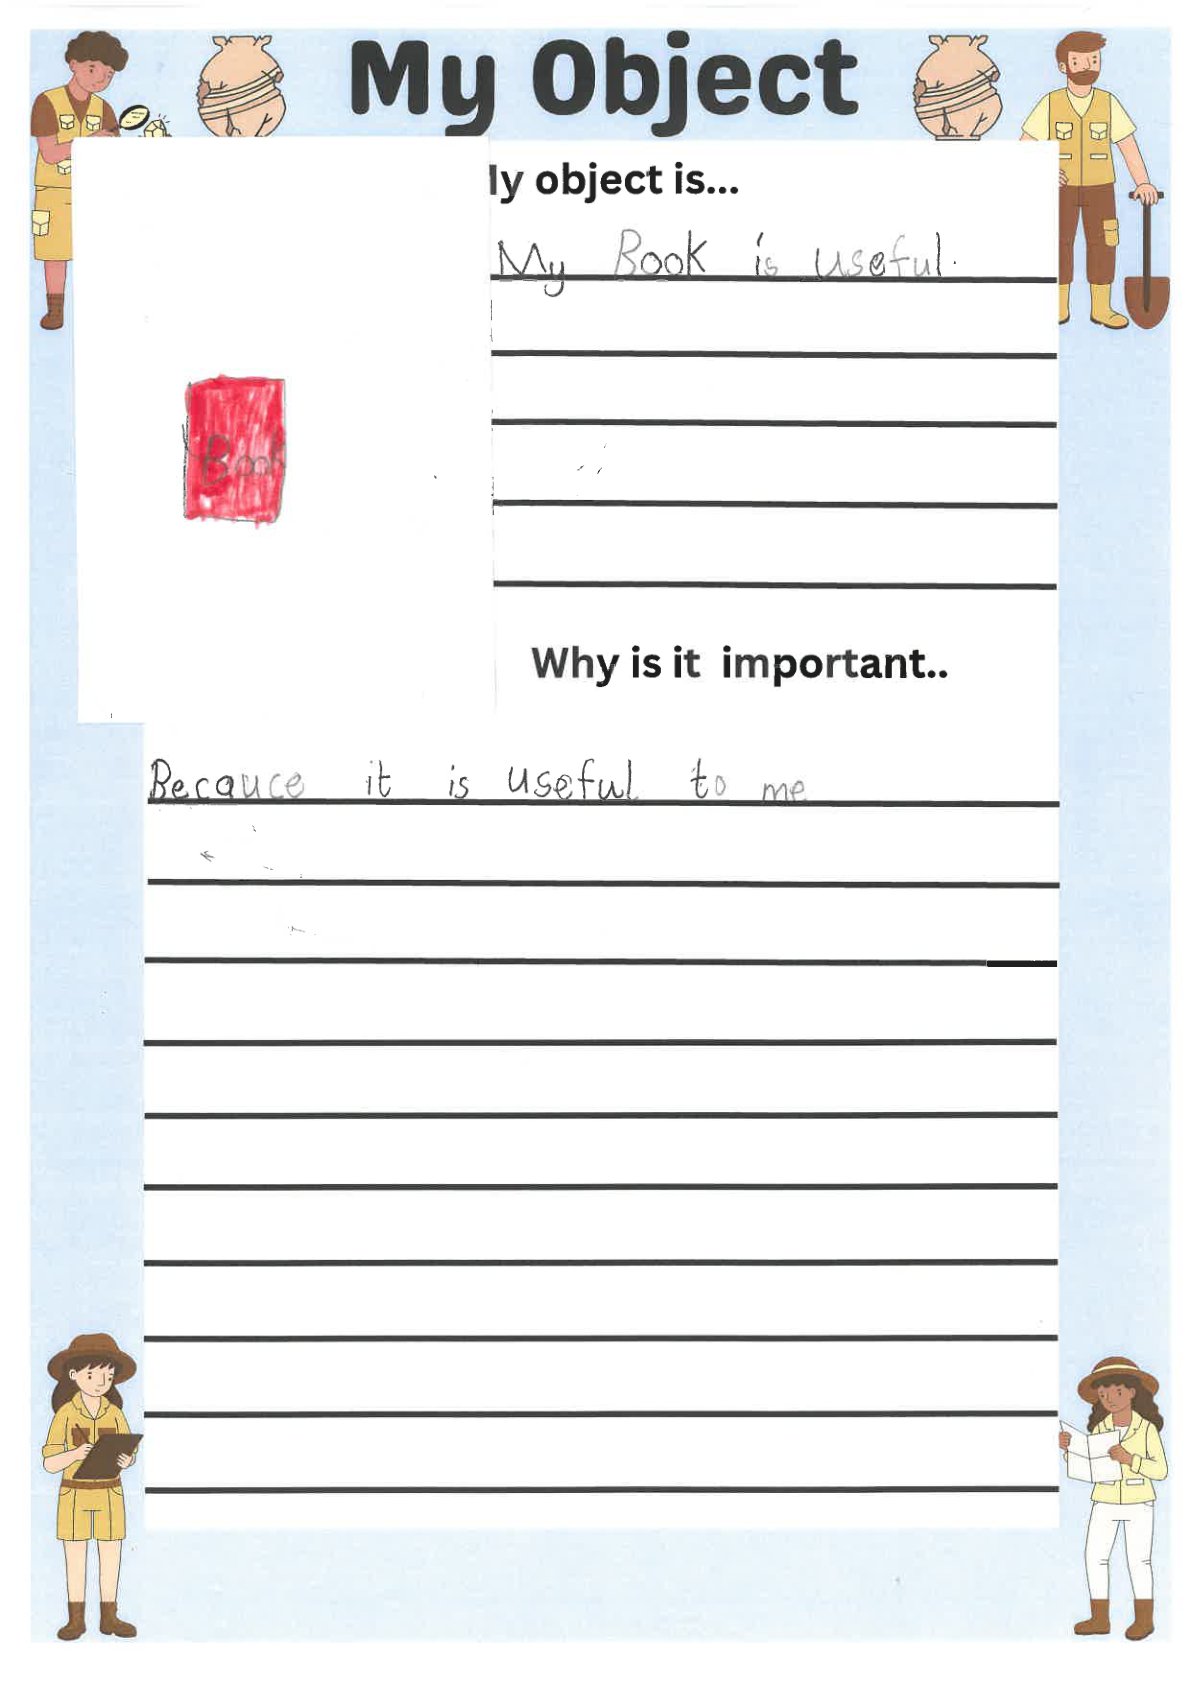 My Object
ly object is...
My Book is useful.
Book
Why is it important..
Becauce it is useful to me